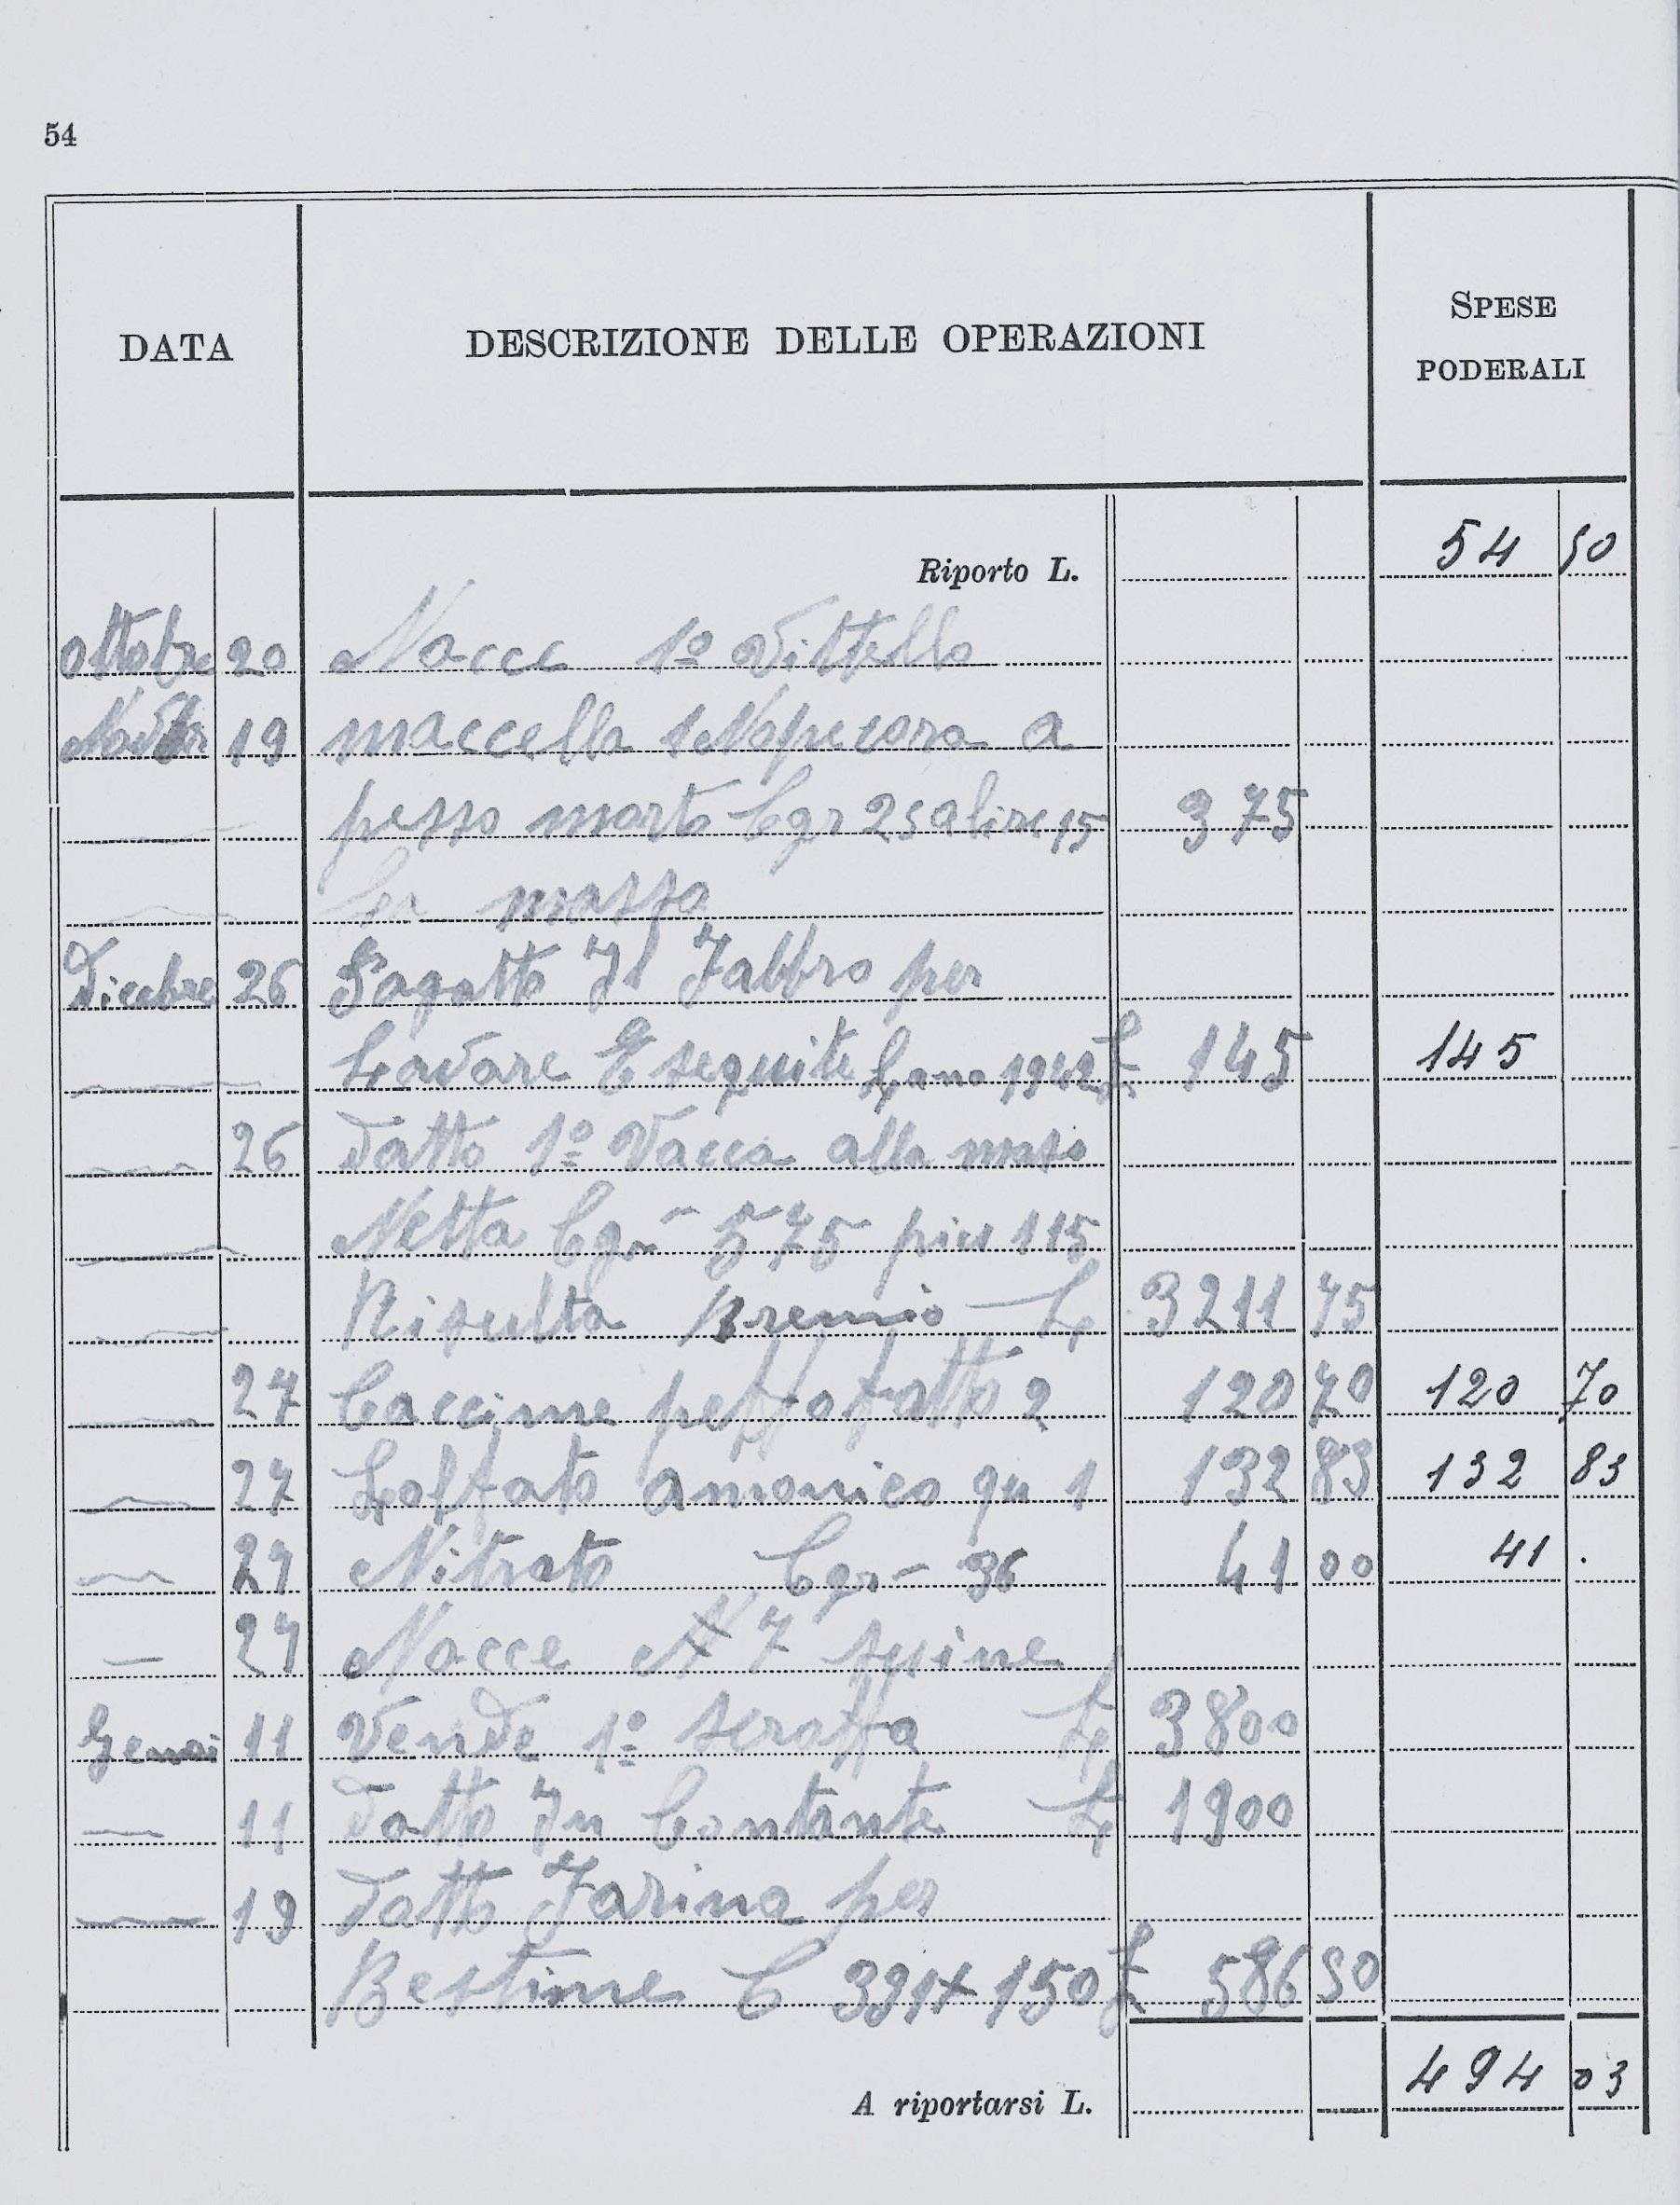 54
DATA
DESCRIZIONE DELLE OPERAZIONI
SPESE PODERALI
Riporto L. 54 50
Ottobre 20 Nacce 1º Vittello
19 maccella 1 pecora a
pesso morto Cgr 25 a lire 15 375
massa
Dicebre 26 Pagatto Il Fabbro per
Lavore Eseguite 1942 £ 145 145
26 Datto 1º Vacca alla
Netta Cgr - 575 piu 115
Risulta Premio L 3211 75
27 Caccime 2 120 70 120 70
27 Solfato amonico qu 1 132 83 132 83
27 Nitrato Cgr - 36 41 00 41 .
27 Nacce N 7 suine
Genai 11 Vende 1º scroffa L 3800
11 Datto In Contante L 1900
19 Datto Farina per
Bestime C 391 + 150 £ 586 50
A riportarsi L. 494 03